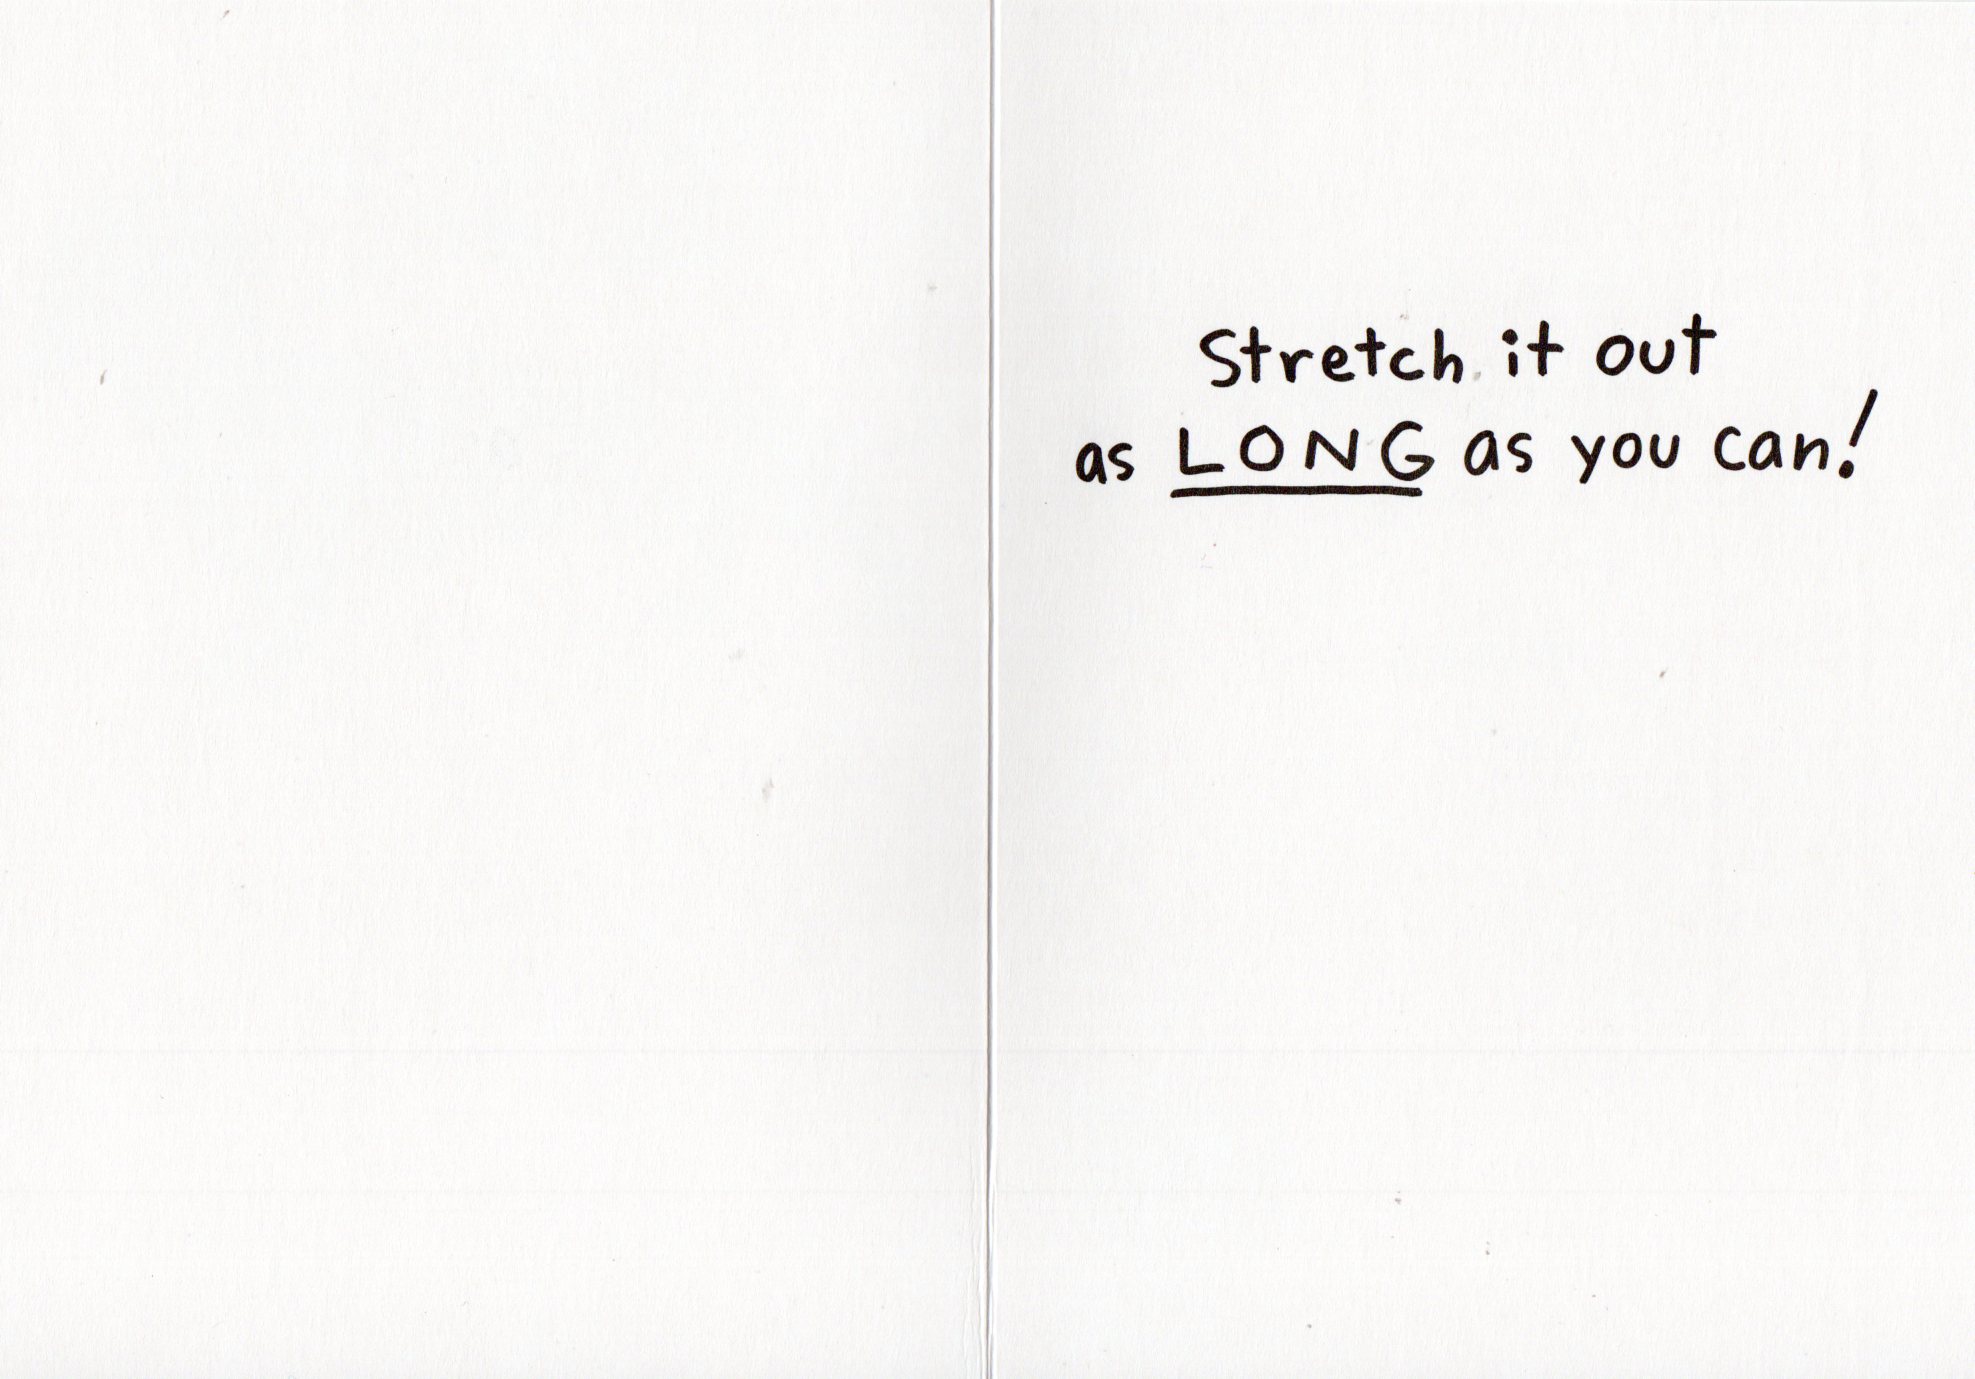 Stretch it out
as LONG as you can!